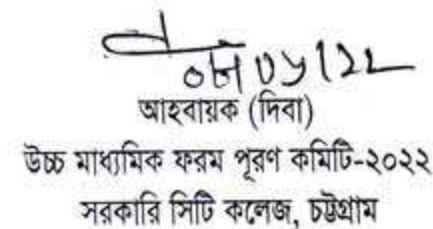 আহবায়ক (দিবা)
উচ্চ মাধ্যমিক ফরম পূরণ কমিটি-২০২২
সরকারি সিটি কলেজ, চট্টগ্রাম